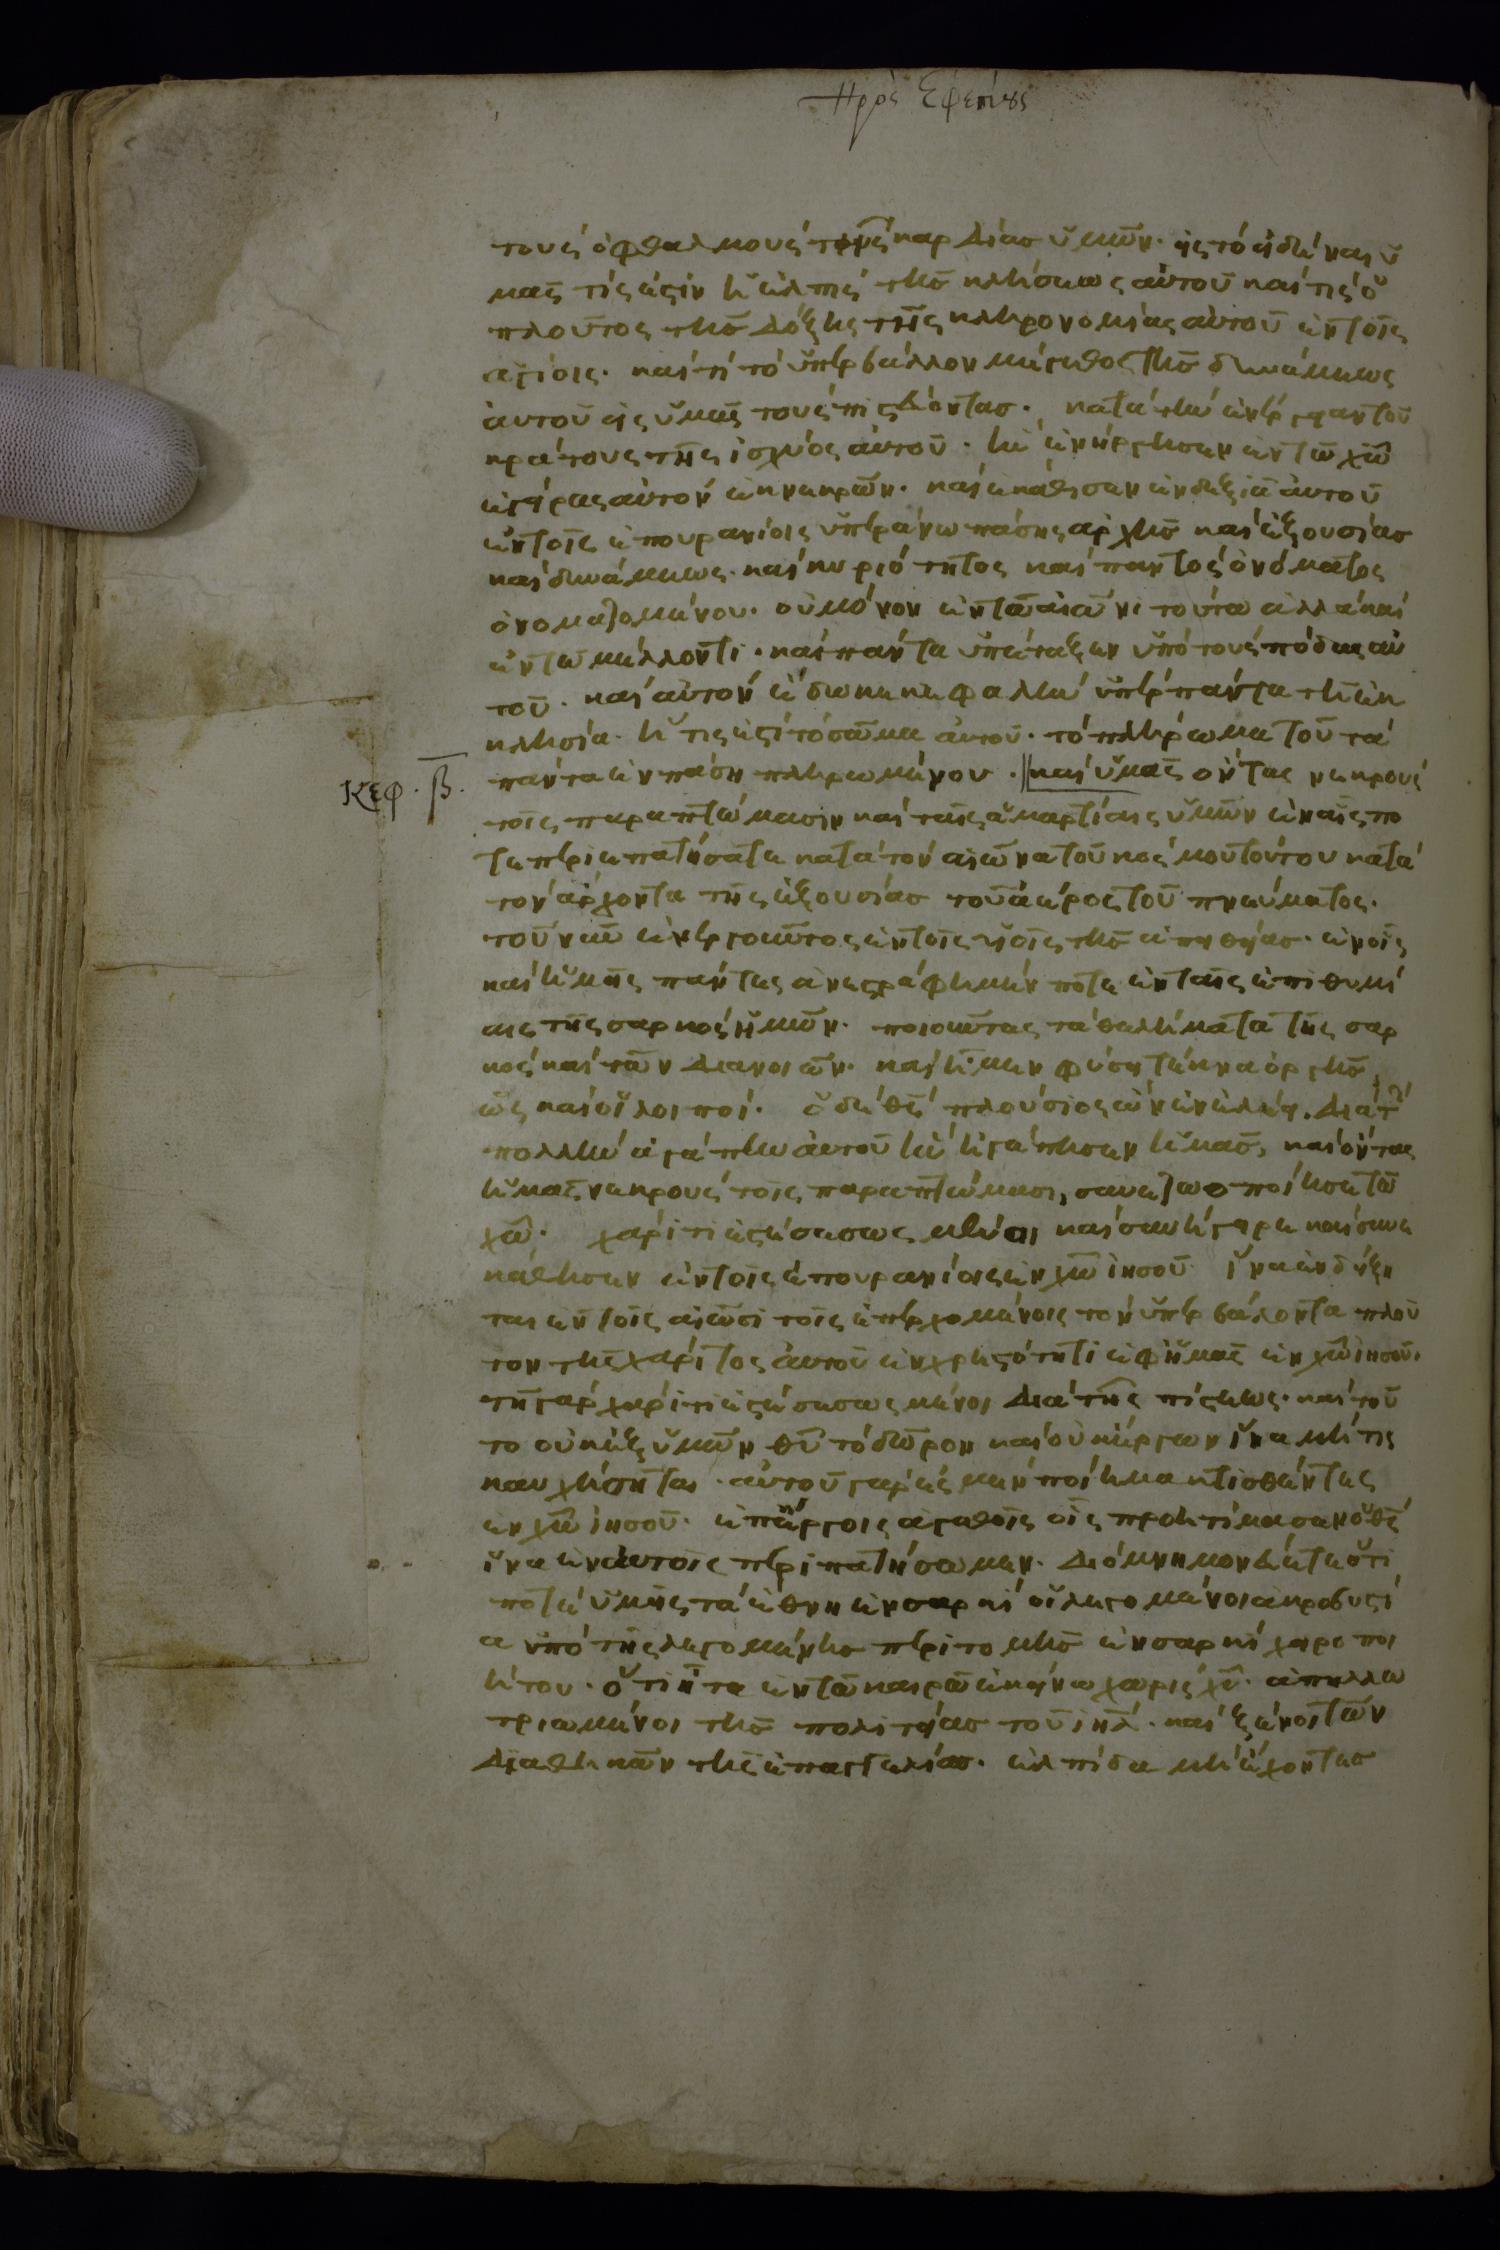 Πρὸς Ἐφεσίους
τοὺς ὀφθαλμοὺς τῆς καρδίας ὑμῶν· εἰς τὸ εἰδέναι ὑ
μᾶς τίς ἐστὶν ἡ ἐλπὶς τῆς κλήσεως αὐτοῦ καὶ τίς ὁ
πλοῦτος τῆς δόξης τῆς κληρονομίας αὐτοῦ ἐν τοῖς
ἁγίοις· καὶ τί τὸ ὑπερβάλλον μέγεθος τῆς δυνάμεως
αὐτοῦ εἰς ὑμᾶς τοὺς πιστεύοντας· κατὰ τὴν ἐνέργειαν τοῦ
κράτους τῆς ἰσχύος αὐτοῦ· ἣν ἐνήργησεν ἐν τῶ χῶ
ἐγείρας αὐτὸν ἐκ νεκρῶν· καὶ ἐκάθισεν ἐν δεξιᾶ αὐτοῦ
ἐν τοῖς ἐπουρανίοις ὑπεράνω πάσης ἀρχῆς καὶ ἐξουσίας
καὶ δυνάμεως· καὶ κυριότητος καὶ παντὸς ὀνόματος
ὀνομαζομένου· οὐ μόνον ἐν τῶ αἰῶνι τούτω ἀλλὰ καὶ
ἐν τῶ μέλλοντι· καὶ πάντα ὑπέταξεν ὑπὸ τοὺς πόδας αὐ
τοῦ· καὶ αὐτὸν ἔδωκε κεφαλὴν ὑπὲρ πάντα τῆ ἐκ
κλησία· ἥτις ἐστὶ τὸ σῶμα αὐτοῦ· τὸ πλήρωμα τοῦ τὰ
πάντα ἐν πάση πληρωμένου· καὶ ὑμᾶς ὄντας νεκροὺς
Κεφ. β.
τοῖς παραπτώμασιν καὶ ταῖς ἁμαρτίαις ὑμῶν ἐν αἷς πο
τε περιεπατήσατε κατὰ τὸν αἰῶνα τοῦ κόσμου τούτου κατὰ
τὸν ἄρχοντα τῆς ἐξουσίας τοῦ ἀέρος τοῦ πνεύματος·
τοῦ νῦν ἐνεργοῦντος ἐν τοῖς υἱοῖς τῆς ἀπειθείας· ἐν οἷς
καὶ ἡμεῖς πάντες ἀνεστράφημέν ποτε ἐν ταῖς ἐπιθυμί
αις τῆς σαρκὸς ἡμῶν· ποιοῦντες τὰ θελήματα τῆς σαρ
κὸς καὶ τῶν διανοιῶν· καὶ ἦμεν φύσει τέκνα ὀργῆς
ὡς καὶ οἱ λοιποί· ὁ δὲ θς πλούσιος ὢν ἐν ἐλέει· διὰ τὴν
πολλὴν ἀγάπην αὐτοῦ ἣν ἠγάπησεν ἡμᾶς, καὶ ὄντας
ἡμᾶς νεκροὺς τοῖς παραπτώμασι, συνεζωοποίησε τῶ
χῶ· χάριτί ἐστε σεσωσμένοι καὶ συνήγειρε καὶ συνε
κάθισεν ἐν τοῖς ἐπουρανίοις ἐν χῶ ἰησοῦ ἵνα ἐνδείξη
ται ἐν τοῖς αἰῶσι τοῖς ἐπερχομένοις τὸν ὑπερβάλοντα πλοῦ
τον τῆς χάριτος αὐτοῦ ἐν χρηστότητι ἐφ ἡμᾶς ἐν χῶ ἰησοῦ·
τῆ γὰρ χάριτί ἐστε σεσωσμένοι διὰ τῆς πίστεως· καὶ τοῦ
το οὐκ ἐξ ὑμῶν θυ τὸ δῶρον καὶ οὐκ ἔργων ἵνα μή τις
καυχήσηται· αὐτοῦ γάρ ἐσμεν ποίημα κτισθέντες
ἐν χῶ ἰησοῦ· ἐπὶ ἔργοις ἀγαθοῖς οἷς προητοίμασεν ὁ θς
ἵνα ἐν αὐτοῖς περιπατήσωμεν· διὸ μνημονεύετε ὅτι
ποτὲ ὑμεῖς τὰ ἔθνη ἐν σαρκὶ οἱ λεγομένοι ἀκροβυστί
α ὑπὸ τῆς λεγομένης περιτομῆς ἐν σαρκὶ χειροποι
ήτου· ὅτι ἦτε ἐν τῶ καιρῶ ἐκείνω χωρὶς χυ· ἀπηλλω
τριωμένοι τῆς πολιτείας τοῦ ἰηλ· καὶ ξένοι τῶν
διαθηκῶν τῆς ἐπαγγελίας· ἐλπίδα μὴ ἔχοντες